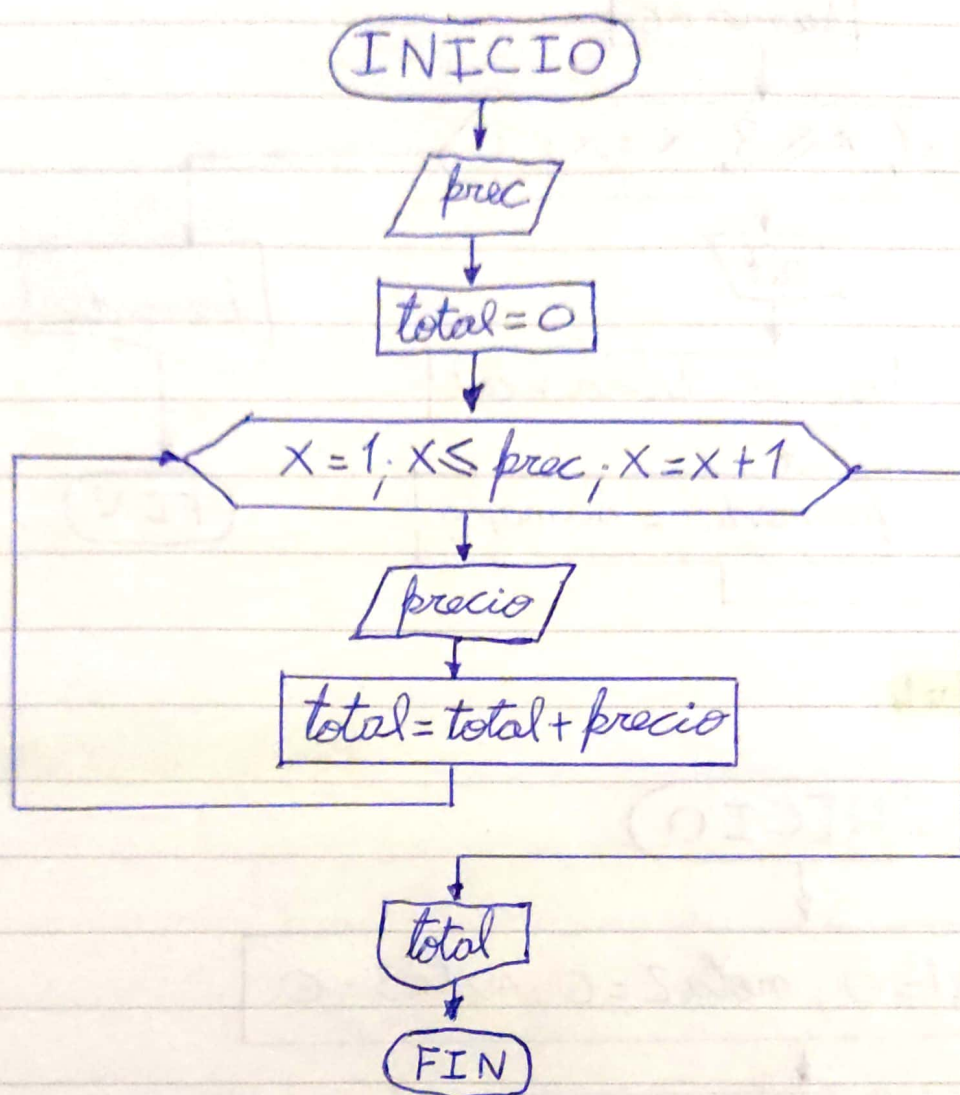 INICIO
prec
total = 0
X = 1; X ≤ prec; X = X + 1
precio
total = total + precio
total
FIN